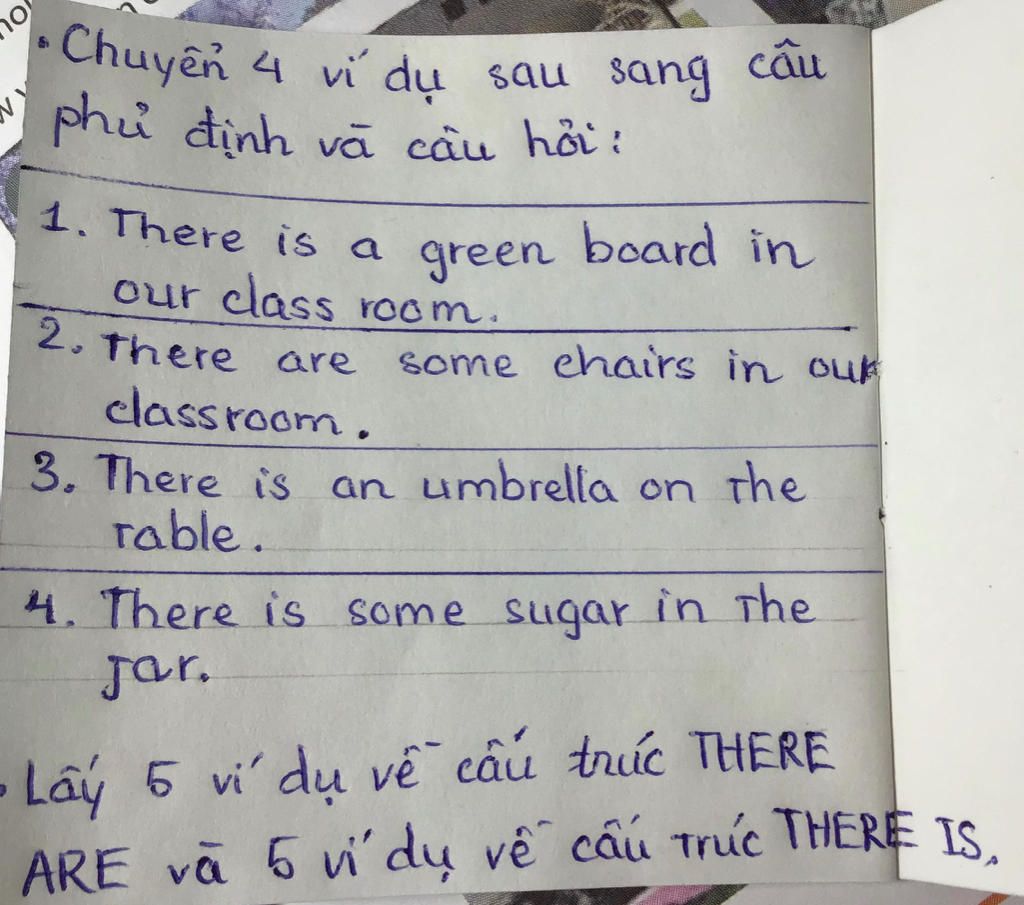 • Chuyển 4 ví dụ sau sang câu
phủ định và câu hỏi:
1. There is a green board in
our class room.
2. There are some chairs in our
classroom.
3. There is an umbrella on the
table.
4. There is some sugar in the
jar.
• Lấy 5 ví dụ về cấu trúc THERE
ARE và 5 ví dụ về cấu trúc THERE IS.